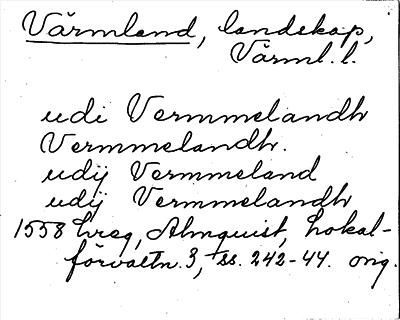 Värmland, landskap,
Värml. l.
udi Vermmelandh
Vermmelandh.
udij Vermmeland
udij Vermmelandh
1558 hreg, Almquist, Lokal-
förvaltn. 3, ss. 242-44. orig.